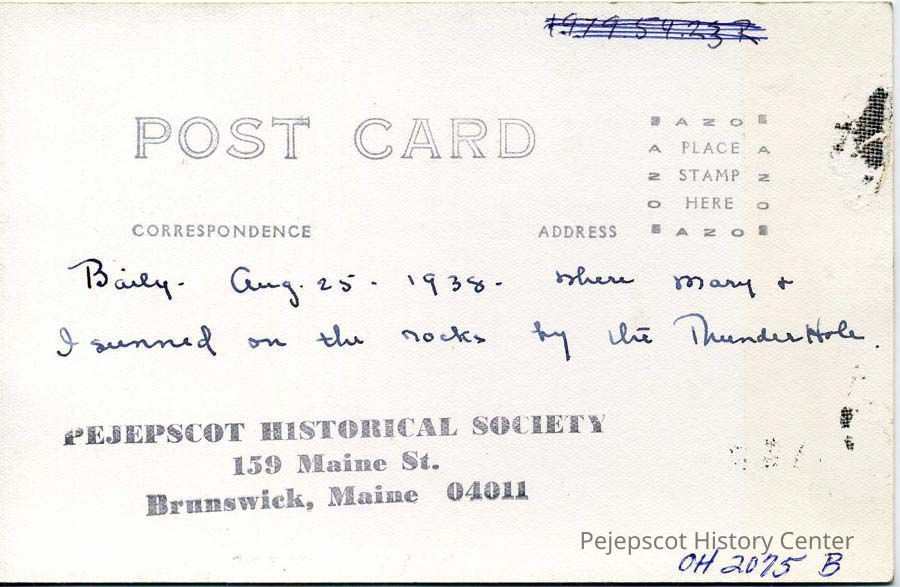 1979.54.23R
POST CARD
AZO
A PLACE A
Z STAMP Z
O HERE O
AZO
CORRESPONDENCE ADDRESS
Baily. Aug. 25 - 1938. Where Mary +
I sunned on the rocks by the Thunder Hole.
PEJEPSCOT HISTORICAL SOCIETY
159 Maine St.
Brunswick, Maine 04011
Pejepscot History Center
OH 2075 B